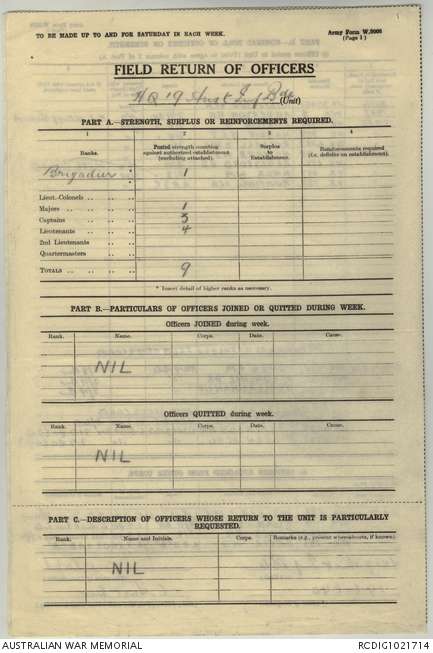 TO BE MADE UP TO AND FOR SATURDAY IN EACH WEEK.
Army Form W.3008
(Page 1)
FIELD RETURN OF OFFICERS
HQ 19 Aust Inf Bde (Unit)
PART A.—STRENGTH, SURPLUS OR REINFORCEMENTS REQUIRED.
1 2 3 4
Ranks. Posted strength counting against authorized establishment (excluding attached). Surplus to Establishment. Reinforcements required (i.e. deficits on establishment).
Brigadier * 1
Lieut.-Colonels .. ..
Majors .. .. .. 1
Captains .. .. .. 3
Lieutenants .. .. 4
2nd Lieutenants .. ..
Quartermasters .. ..
TOTALS .. .. .. 9
* Insert detail of higher ranks as necessary.
PART B.—PARTICULARS OF OFFICERS JOINED OR QUITTED DURING WEEK.
Officers JOINED during week.
Rank. Name. Corps. Date. Cause.
NIL
Officers QUITTED during week.
Rank. Name. Corps. Date. Cause.
NIL
PART C.—DESCRIPTION OF OFFICERS WHOSE RETURN TO THE UNIT IS PARTICULARLY
REQUESTED.
Rank. Name and Initials. Corps. Remarks (e.g., present whereabouts, if known).
NIL
AUSTRALIAN WAR MEMORIAL
RCDIG1021714